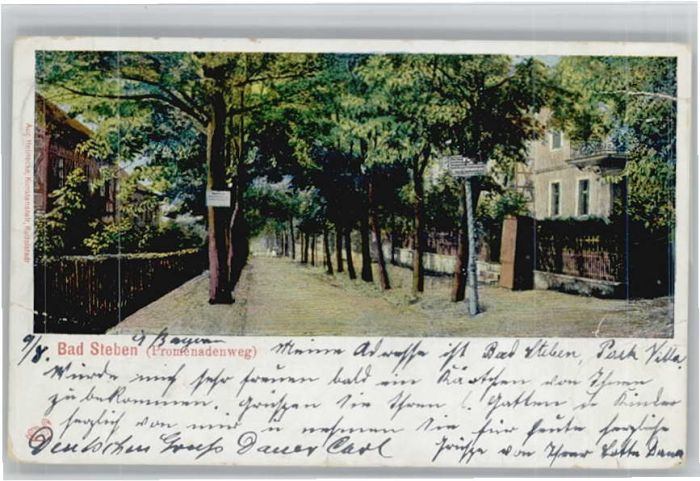 Aug. Reinecke, Kunstanstalt, Rudolstadt
9/8. Bad Steben (Promenadenweg) i/Bayern
Meine Adresse ist Bad Steben, Park Villa.
Würde mich sehr freuen bald ein Kärtchen von Ihnen
zu bekommen. Grüssen Sie Ihren l. Gatten u Kinder
herzlich von mir u nehmen Sie für heute herzliche
Grüsse von Ihrer Lotte Dauer
Deutschen Gruß Dauer Carl